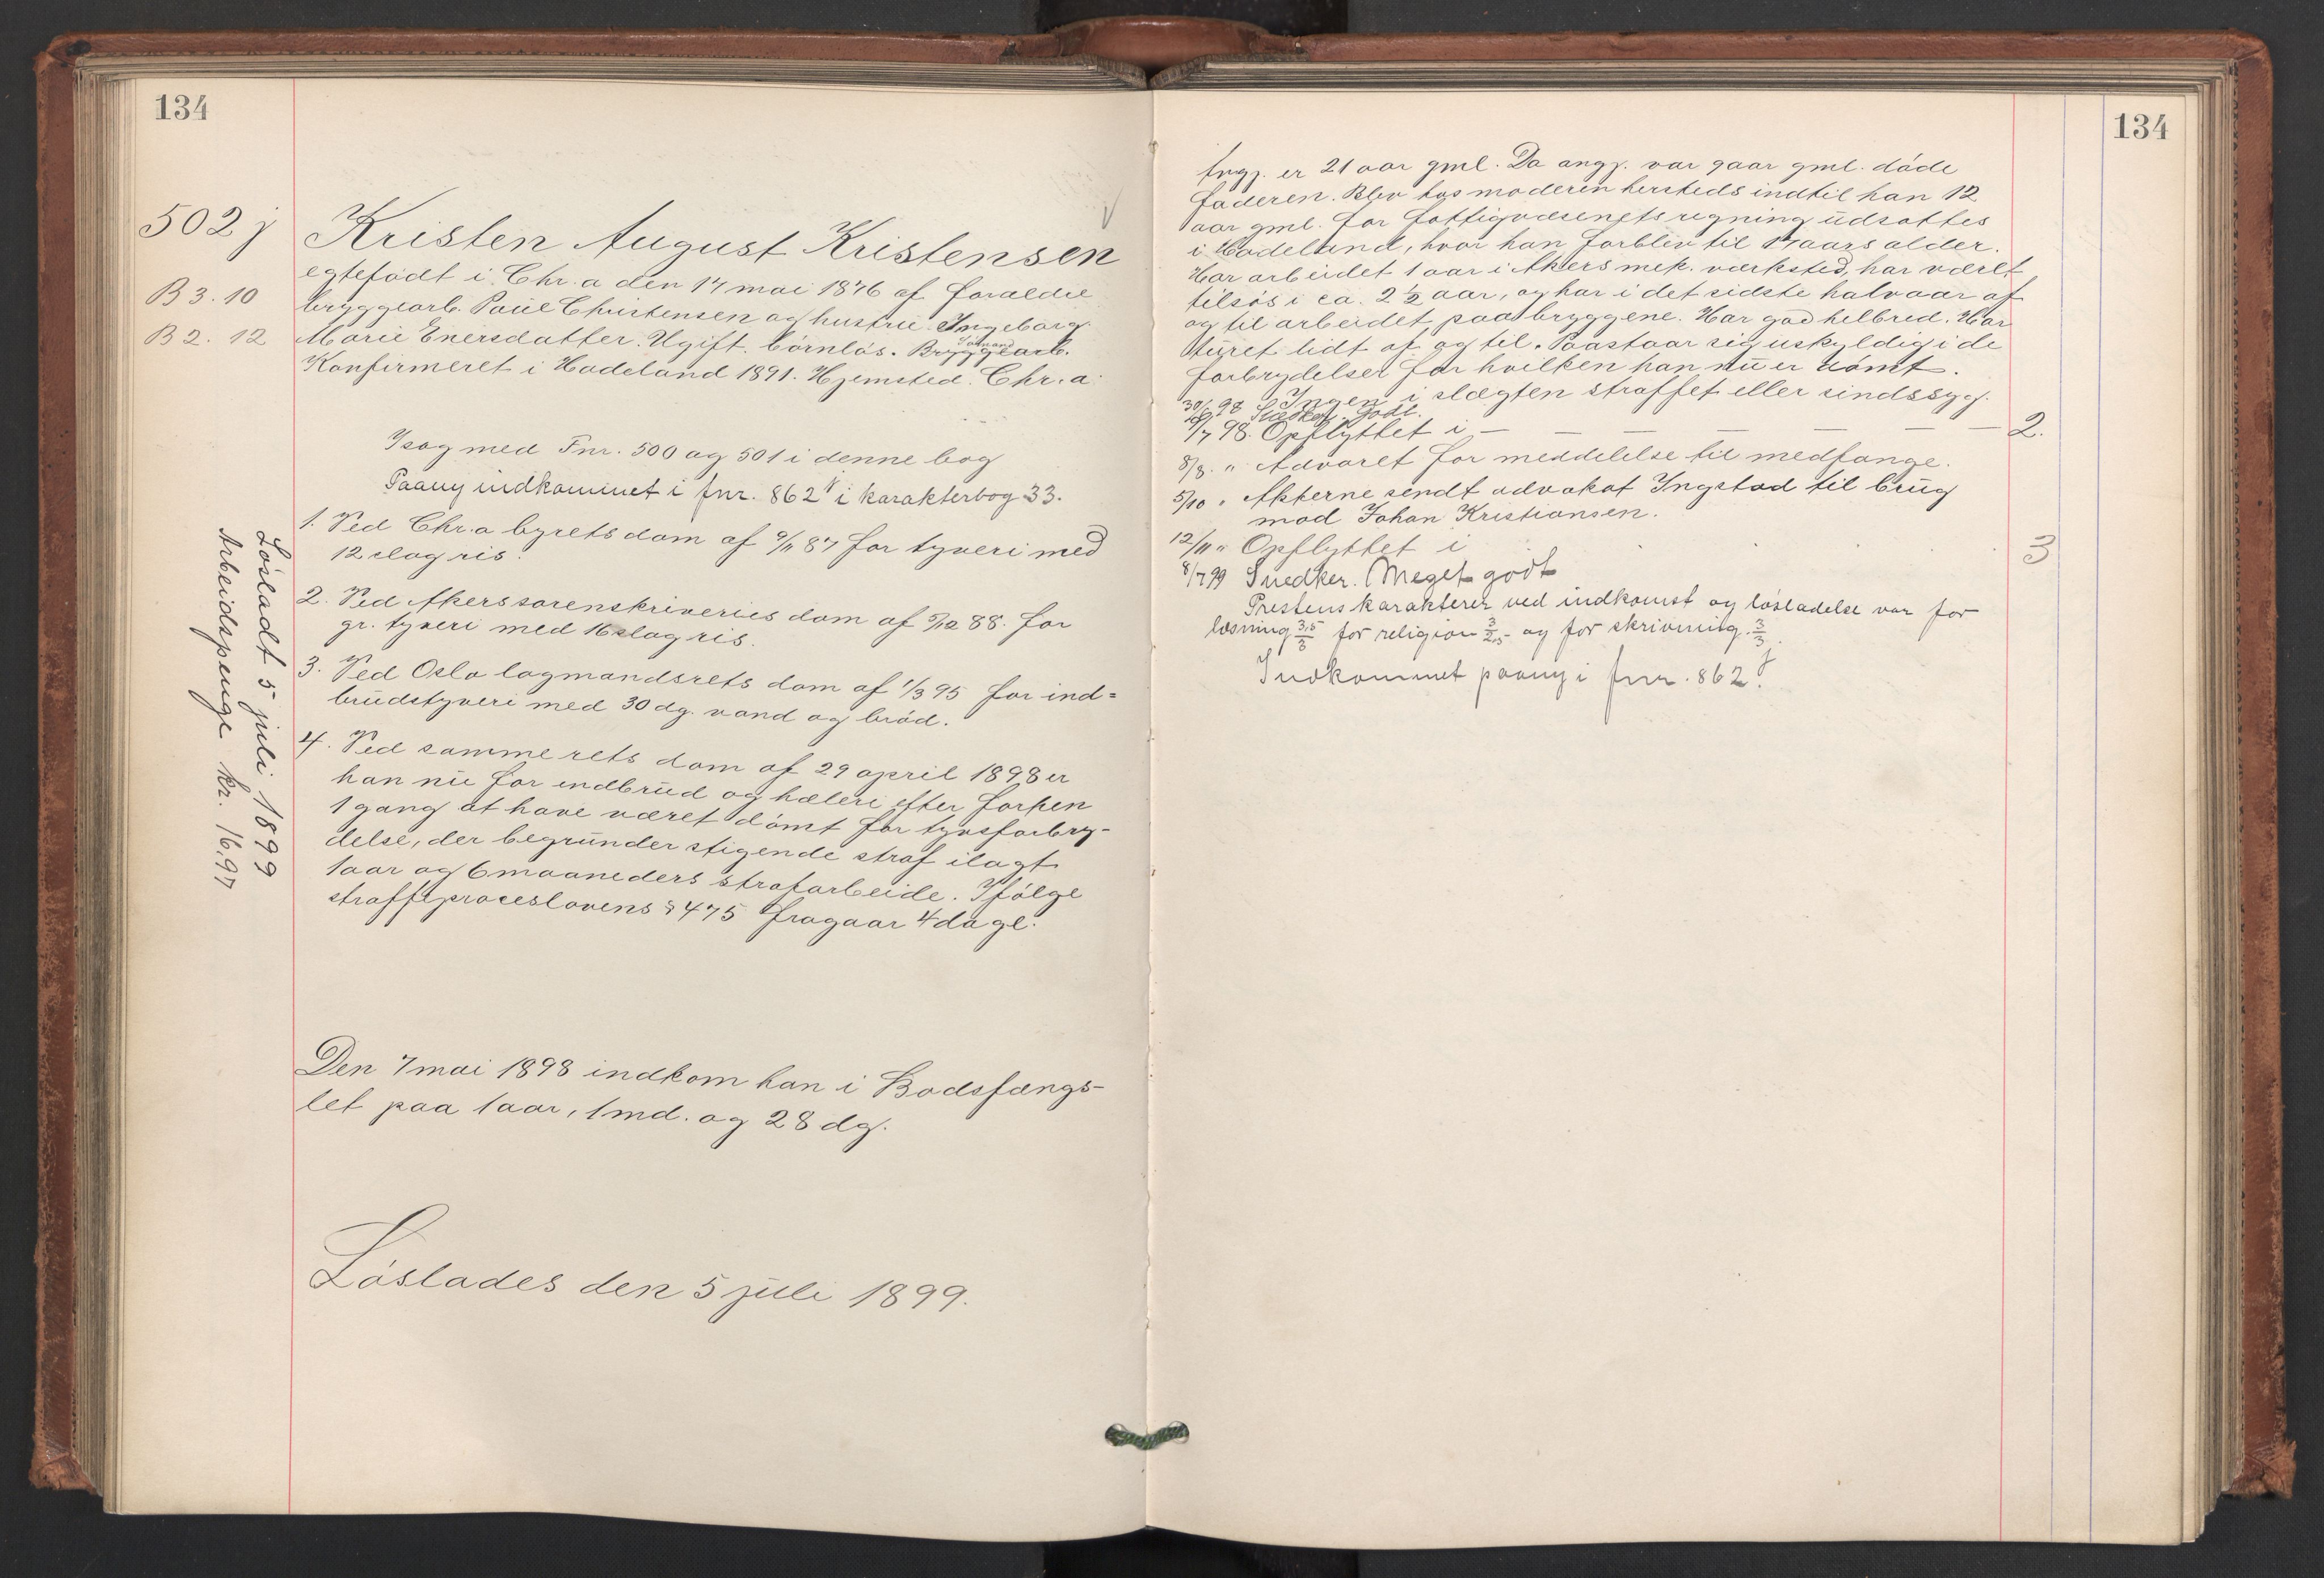 134
502 j
B 3. 10
B 2. 12
Kristen August Kristensen
egtefødt i Chr.a den 17 mai 1876 af forældre
bryggearb. Paul Christensen og hustru Ingeborg
Marie Enersdatter. Ugift. børnløs. Bryggearb.
Sømand
Konfirmeret i Hadeland 1891. Hjemsted. Chr.a.
I sag med Fnr. 500 og 501 i denne bog
Paany indkommet i fnr. 862 j i karakterbog 33.
1. Ved Chr.a byrets dom af 9/11 87 for tyveri med
12 slag ris.
2. Ved Akers sorenskriveries dom af 5/12 88. for
gr. tyveri med 16 slag ris.
3. Ved Oslo lagmandsrets dom af 1/3 95 for ind=
brudstyveri med 30 dg. vand og brød.
4. Ved samme rets dom af 29 april 1898 er
han nu for indbrud og hæleri efter forhen
1 gang at have været dømt for tyvsforbry-
delse, der begrunder stigende straf ilagt
1 aar og 6 maaneders strafarbeide. Ifølge
straffeproceslovens § 475 fragaar 4 dage.
Løsladt 5 juli 1899
Arbeidspenge kr. 16,97
Den 7 mai 1898 indkom han i Bodsfængs-
let paa 1 aar, 1 md. og 28 dg.
Løslades den 5 juli 1899.
134
Angj. er 21 aar gml. Da angj. var 9 aar gml. døde
faderen. Blev hos moderen hersteds indtil han 12
aar gml. for fattigvæsenets regning udsattes
i Hadeland, hvor han forblev til 17 aars alder.
Har arbeidet 1 aar i Akers mek. værksted, har været
tilsøs i ca. 2 1/2 aar, og har i det sidste halvaar af
og til arbeidet paa bryggene. Har god helbred. Har
turet lidt af og til. Paastaar sig uskyldig i de
forbrydelser for hvilken han nu er dømt.
Ingen i slægten straffet eller sindssyg.
30/6 98 Snedker. Godt.
/7 98. Opflyttet i — — — — — — — 2.
8/8. " Advaret for meddelelse til medfange.
5/10 " Akterne sendt advokat Ingstad til brug
mod Johan Kristiansen.
12/11 " Opflyttet i . . . . 3
8/7 99 Snedker. Meget godt
Prestens karakterer ved indkomst og løsladelse var for
læsning 3,5/3 for religion 3/2,5 og for skrivning 3/3.
Indkommet paany i fnr. 862 j.